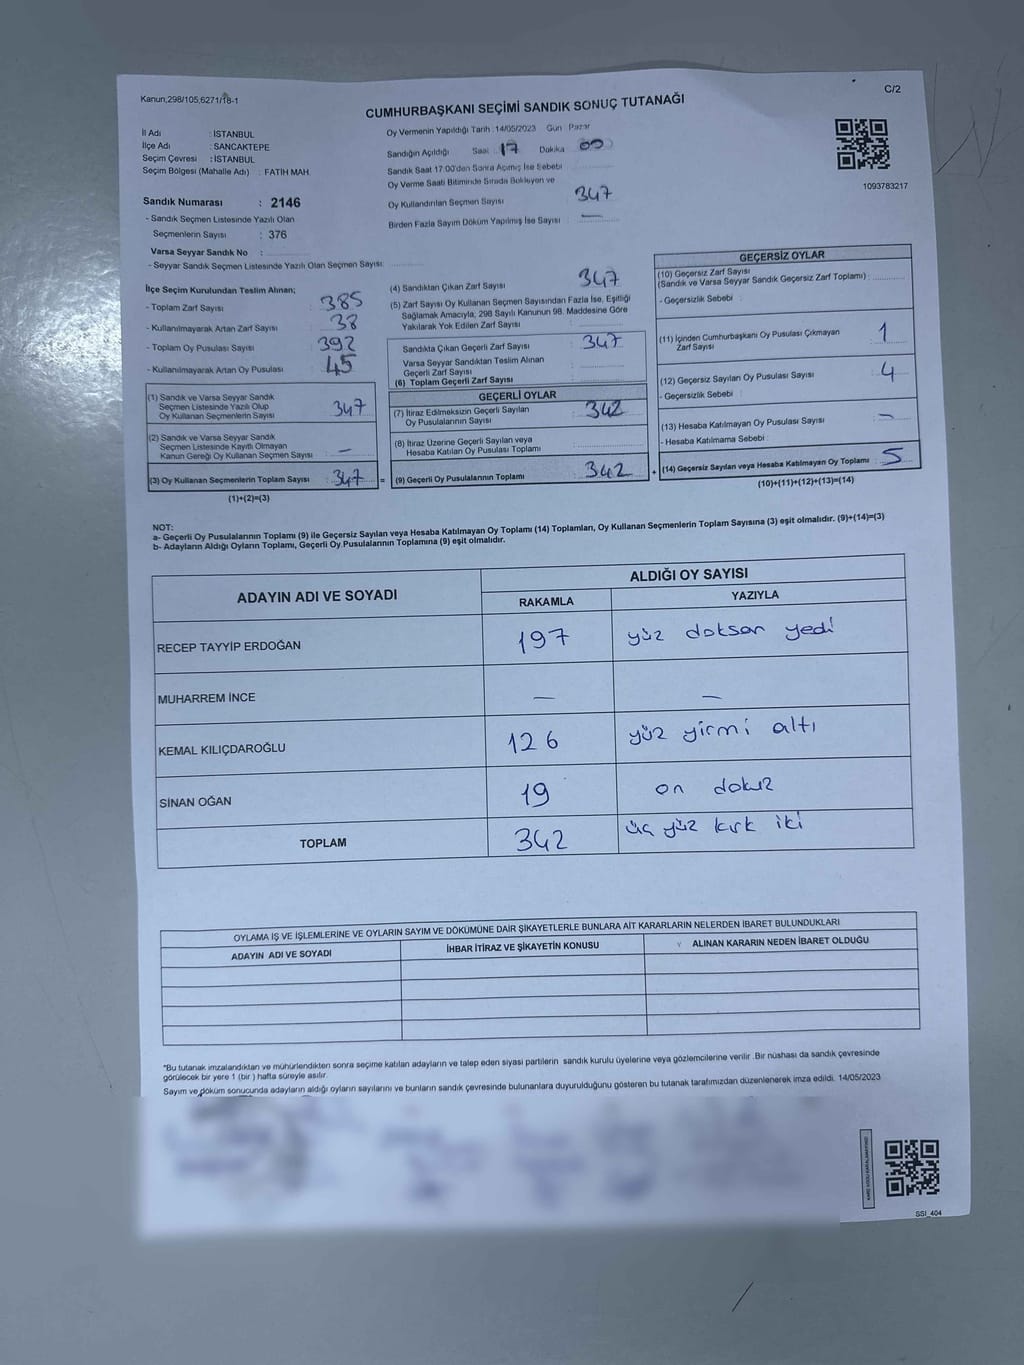 Kanun,298/105,6271/18-1
C/2
CUMHURBAŞKANI SEÇİMİ SANDIK SONUÇ TUTANAĞI
1093783217
İl Adı : İSTANBUL
İlçe Adı : SANCAKTEPE
Seçim Çevresi : İSTANBUL
Seçim Bölgesi (Mahalle Adı) : FATİH MAH.
Sandık Numarası : 2146
- Sandık Seçmen Listesinde Yazılı Olan
Seçmenlerin Sayısı : 376
Varsa Seyyar Sandık No :
- Seyyar Sandık Seçmen Listesinde Yazılı Olan Seçmen Sayısı:
Oy Vermenin Yapıldığı Tarih :14/05/2023 Gün : Pazar
Sandığın Açıldığı Saat : 17 Dakika : 00
Sandık Saat 17:00'den Sonra Açılmış İse Sebebi :
Oy Verme Saati Bitiminde Sırada Bekleyen ve
Oy Kullandırılan Seçmen Sayısı : 347
Birden Fazla Sayım Döküm Yapılmış İse Sayısı : —
İlçe Seçim Kurulundan Teslim Alınan;
- Toplam Zarf Sayısı : 385
- Kullanılmayarak Artan Zarf Sayısı : 38
- Toplam Oy Pusulası Sayısı : 392
- Kullanılmayarak Artan Oy Pusulası : 45
(1) Sandık ve Varsa Seyyar Sandık
Seçmen Listesinde Yazılı Olup
Oy Kullanan Seçmenlerin Sayısı : 347
(2) Sandık ve Varsa Seyyar Sandık
Seçmen Listesinde Kayıtlı Olmayan
Kanun Gereği Oy Kullanan Seçmen Sayısı : —
(3) Oy Kullanan Seçmenlerin Toplam Sayısı : 347 =
(1)+(2)=(3)
(4) Sandıktan Çıkan Zarf Sayısı : 347
(5) Zarf Sayısı Oy Kullanan Seçmen Sayısından Fazla İse, Eşitliği
Sağlamak Amacıyla, 298 Sayılı Kanunun 98. Maddesine Göre
Yakılarak Yok Edilen Zarf Sayısı :
Sandıkta Çıkan Geçerli Zarf Sayısı : 347
Varsa Seyyar Sandıktan Teslim Alınan
Geçerli Zarf Sayısı :
(6) Toplam Geçerli Zarf Sayısı :
GEÇERLİ OYLAR
(7) İtiraz Edilmeksizin Geçerli Sayılan
Oy Pusulalarının Sayısı : 342
(8) İtiraz Üzerine Geçerli Sayılan veya
Hesaba Katılan Oy Pusulası Toplamı :
(9) Geçerli Oy Pusulalarının Toplamı : 342 +
GEÇERSİZ OYLAR
(10) Geçersiz Zarf Sayısı
(Sandık ve Varsa Seyyar Sandık Geçersiz Zarf Toplamı) :
- Geçersizlik Sebebi :
(11) İçinden Cumhurbaşkanı Oy Pusulası Çıkmayan
Zarf Sayısı : 1
(12) Geçersiz Sayılan Oy Pusulası Sayısı : 4
- Geçersizlik Sebebi :
(13) Hesaba Katılmayan Oy Pusulası Sayısı : —
- Hesaba Katılmama Sebebi :
(14) Geçersiz Sayılan veya Hesaba Katılmayan Oy Toplamı : 5
(10)+(11)+(12)+(13)=(14)
NOT:
a- Geçerli Oy Pusulalarının Toplamı (9) ile Geçersiz Sayılan veya Hesaba Katılmayan Oy Toplamı (14) Toplamları, Oy Kullanan Seçmenlerin Toplam Sayısına (3) eşit olmalıdır. (9)+(14)=(3)
b- Adayların Aldığı Oyların Toplamı, Geçerli Oy Pusulalarının Toplamına (9) eşit olmalıdır.
ADAYIN ADI VE SOYADI ALDIĞI OY SAYISI
RAKAMLA YAZIYLA
RECEP TAYYİP ERDOĞAN 197 yüz doksan yedi
MUHARREM İNCE — —
KEMAL KILIÇDAROĞLU 126 yüz yirmi altı
SİNAN OĞAN 19 on dokuz
TOPLAM 342 üç yüz kırk iki
OYLAMA İŞ VE İŞLEMLERİNE VE OYLARIN SAYIM VE DÖKÜMÜNE DAİR ŞİKAYETLERLE BUNLARA AİT KARARLARIN NELERDEN İBARET BULUNDUKLARI
ADAYIN ADI VE SOYADI İHBAR İTİRAZ VE ŞİKAYETİN KONUSU ALINAN KARARIN NEDEN İBARET OLDUĞU
*Bu tutanak imzalandıktan ve mühürlendikten sonra seçime katılan adayların ve talep eden siyasi partilerin sandık kurulu üyelerine veya gözlemcilerine verilir .Bir nüshası da sandık çevresinde
görülecek bir yere 1 (bir ) hafta süreyle asılır.
Sayım ve döküm sonucunda adayların aldığı oyların sayılarını ve bunların sandık çevresinde bulunanlara duyurulduğunu gösteren bu tutanak tarafımızdan düzenlenerek imza edildi. 14/05/2023
SSI_404